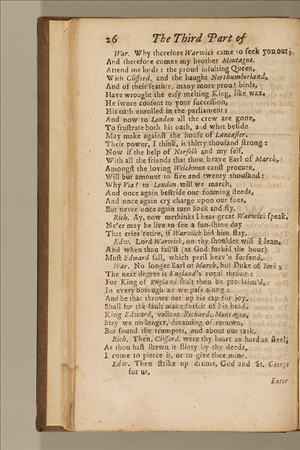 26 The Third Part of
War. Why therefore Warwick came to seek you out;
And therefore comes my brother Montague.
Attend me lords: the proud insulting Queen,
With Clifford, and the haught Northumberland,
And of their feather, many more proud birds,
Have wrought the easy melting King, like wax.
He swore consent to your succession,
His oath enrolled in the parliament;
And now to London all the crew are gone,
To frustrate both his oath, and what beside
May make against the house of Lancaster.
Their power, I think, is thirty thousand strong:
Now if the help of Norfolk and my self,
With all the friends that thou brave Earl of March,
Amongst the loving Welchmen canst procure,
Will but amount to five and twenty thousand:
Why Via! to London will we march,
And once again bestride our foaming steeds,
And once again cry charge upon our foes,
But never once again turn back and fly.
Rich. Ay, now methinks I hear great Warwick speak.
Ne'er may he live to see a sun-shine day
That cries retire, if Warwick bid him stay.
Edw. Lord Warwick, on thy shoulder will I lean,
And when thou fail'st (as God forbid the hour)
Must Edward fall, which peril heav'n forfend.
War. No longer Earl of March, but Duke of York;
The next degree is England's royal throne:
For King of England shalt thou be proclaim'd,
In every borough as we pass along:
And he that throws not up his cap for joy,
Shall for the fault make forfeit of his head.
King Edward, valiant Richard, Montague,
Stay we no longer, dreaming of renown,
But sound the trumpets, and about our task.
Rich. Then, Clifford, were thy heart as hard as steel,
As thou hast shewn it flinty by thy deeds,
I come to pierce it, or to give thee mine.
Edw. Then strike up drums, God and St. George
for us.
Enter